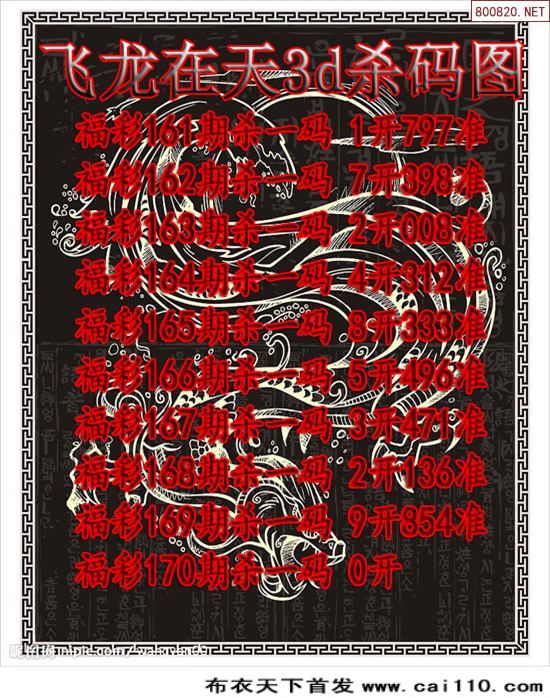 800820.NET
飞龙在天3d杀码图
福彩161期杀一码 1开797准
福彩162期杀一码 7开398准
福彩163期杀一码 2开008准
福彩164期杀一码 4开312准
福彩165期杀一码 8开333准
福彩166期杀一码 5开496准
福彩167期杀一码 3开471准
福彩168期杀一码 2开136准
福彩169期杀一码 9开854准
福彩170期杀一码 0开
布衣天下首发 www.cai110.com